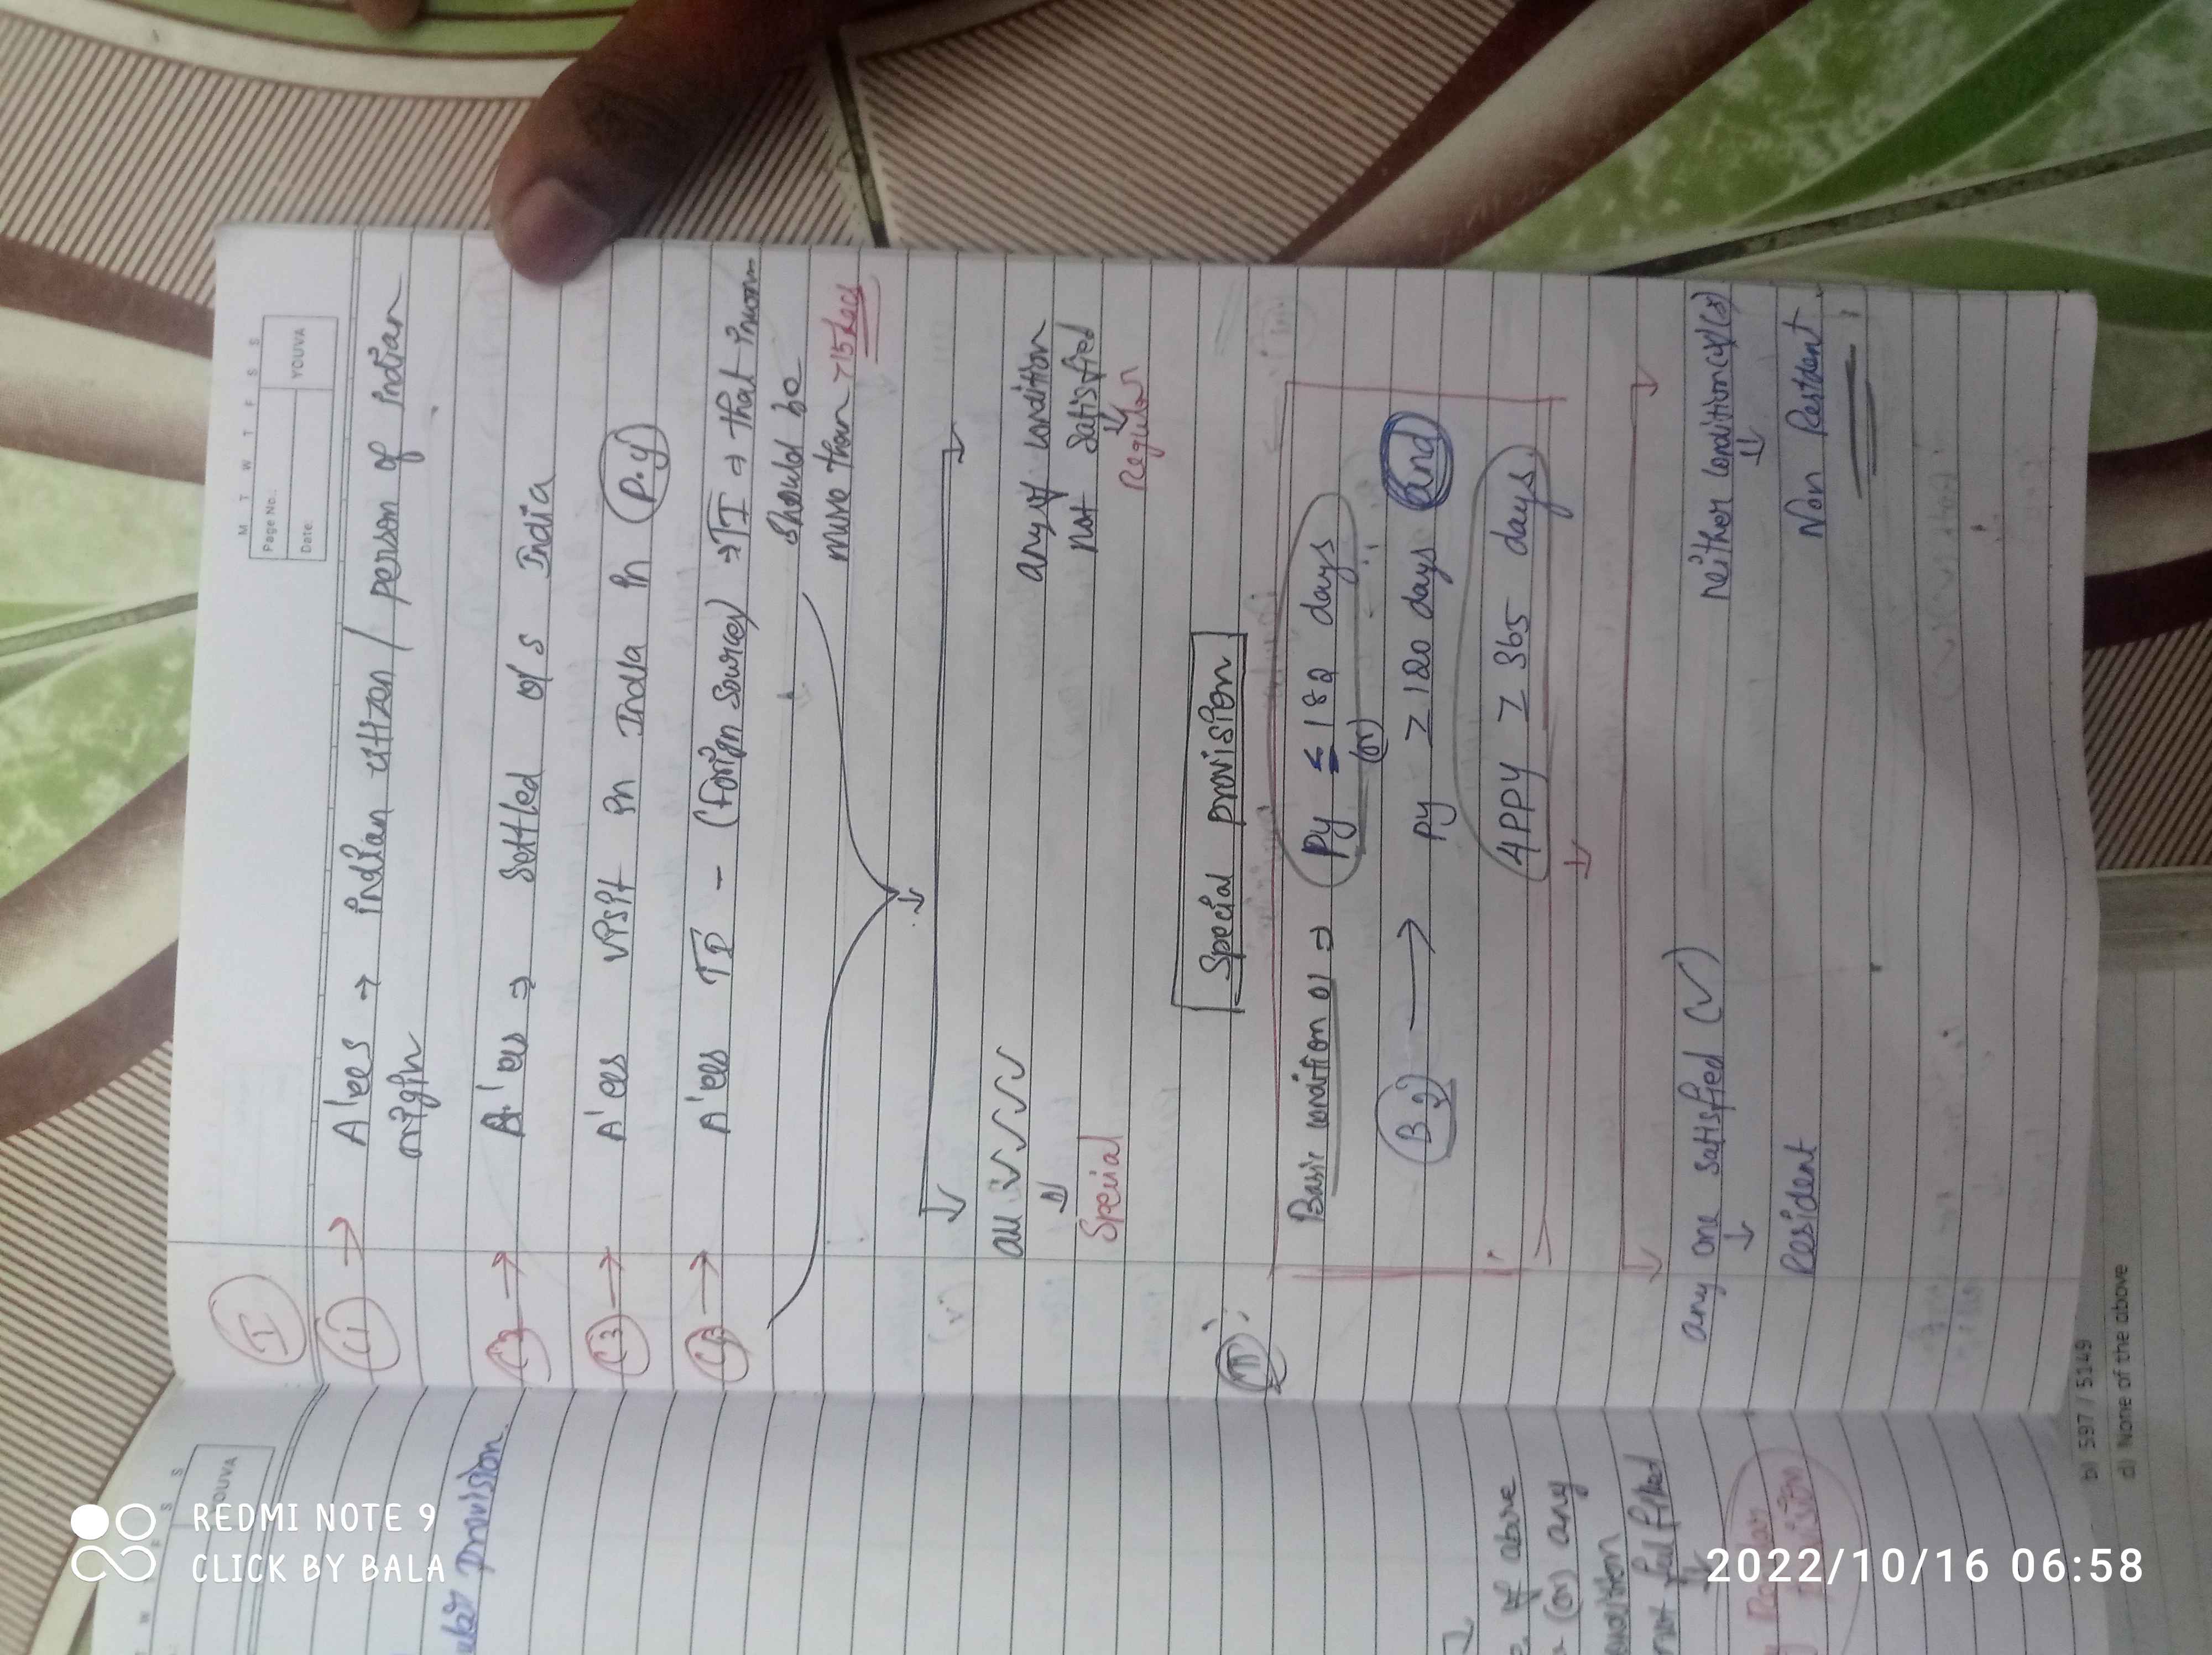 M T W T F S S
Page No.:
Date:
YOUVA
I
C1 → A'ees → indian citizen / person of indian
origin
C2 → A'ees ⇒ settled o/s India
C3 → A'ees visit in India in P.y
→ A'ees TI - (Forign Sources) ⇒ TI ⇒ that incom
should be
more than > 15 Lacs
all ✓ ✓ ✓ ✓
any of condition
not satisfied
Special
Regular
Special provision
Basic condition 01 ⇒ Py ≤ 182 days
(or)
B.2 → Py ≥ 120 days and
4PPY ≥ 365 days
any one satisfied (✓)
neither condition (x) (x)
Resident
Non Resident
S
YOUVA
provision
of above
(or) any
not fulfilled
b) 597 / 5149
d) None of the above
REDMI NOTE 9
CLICK BY BALA
2022/10/16 06:58